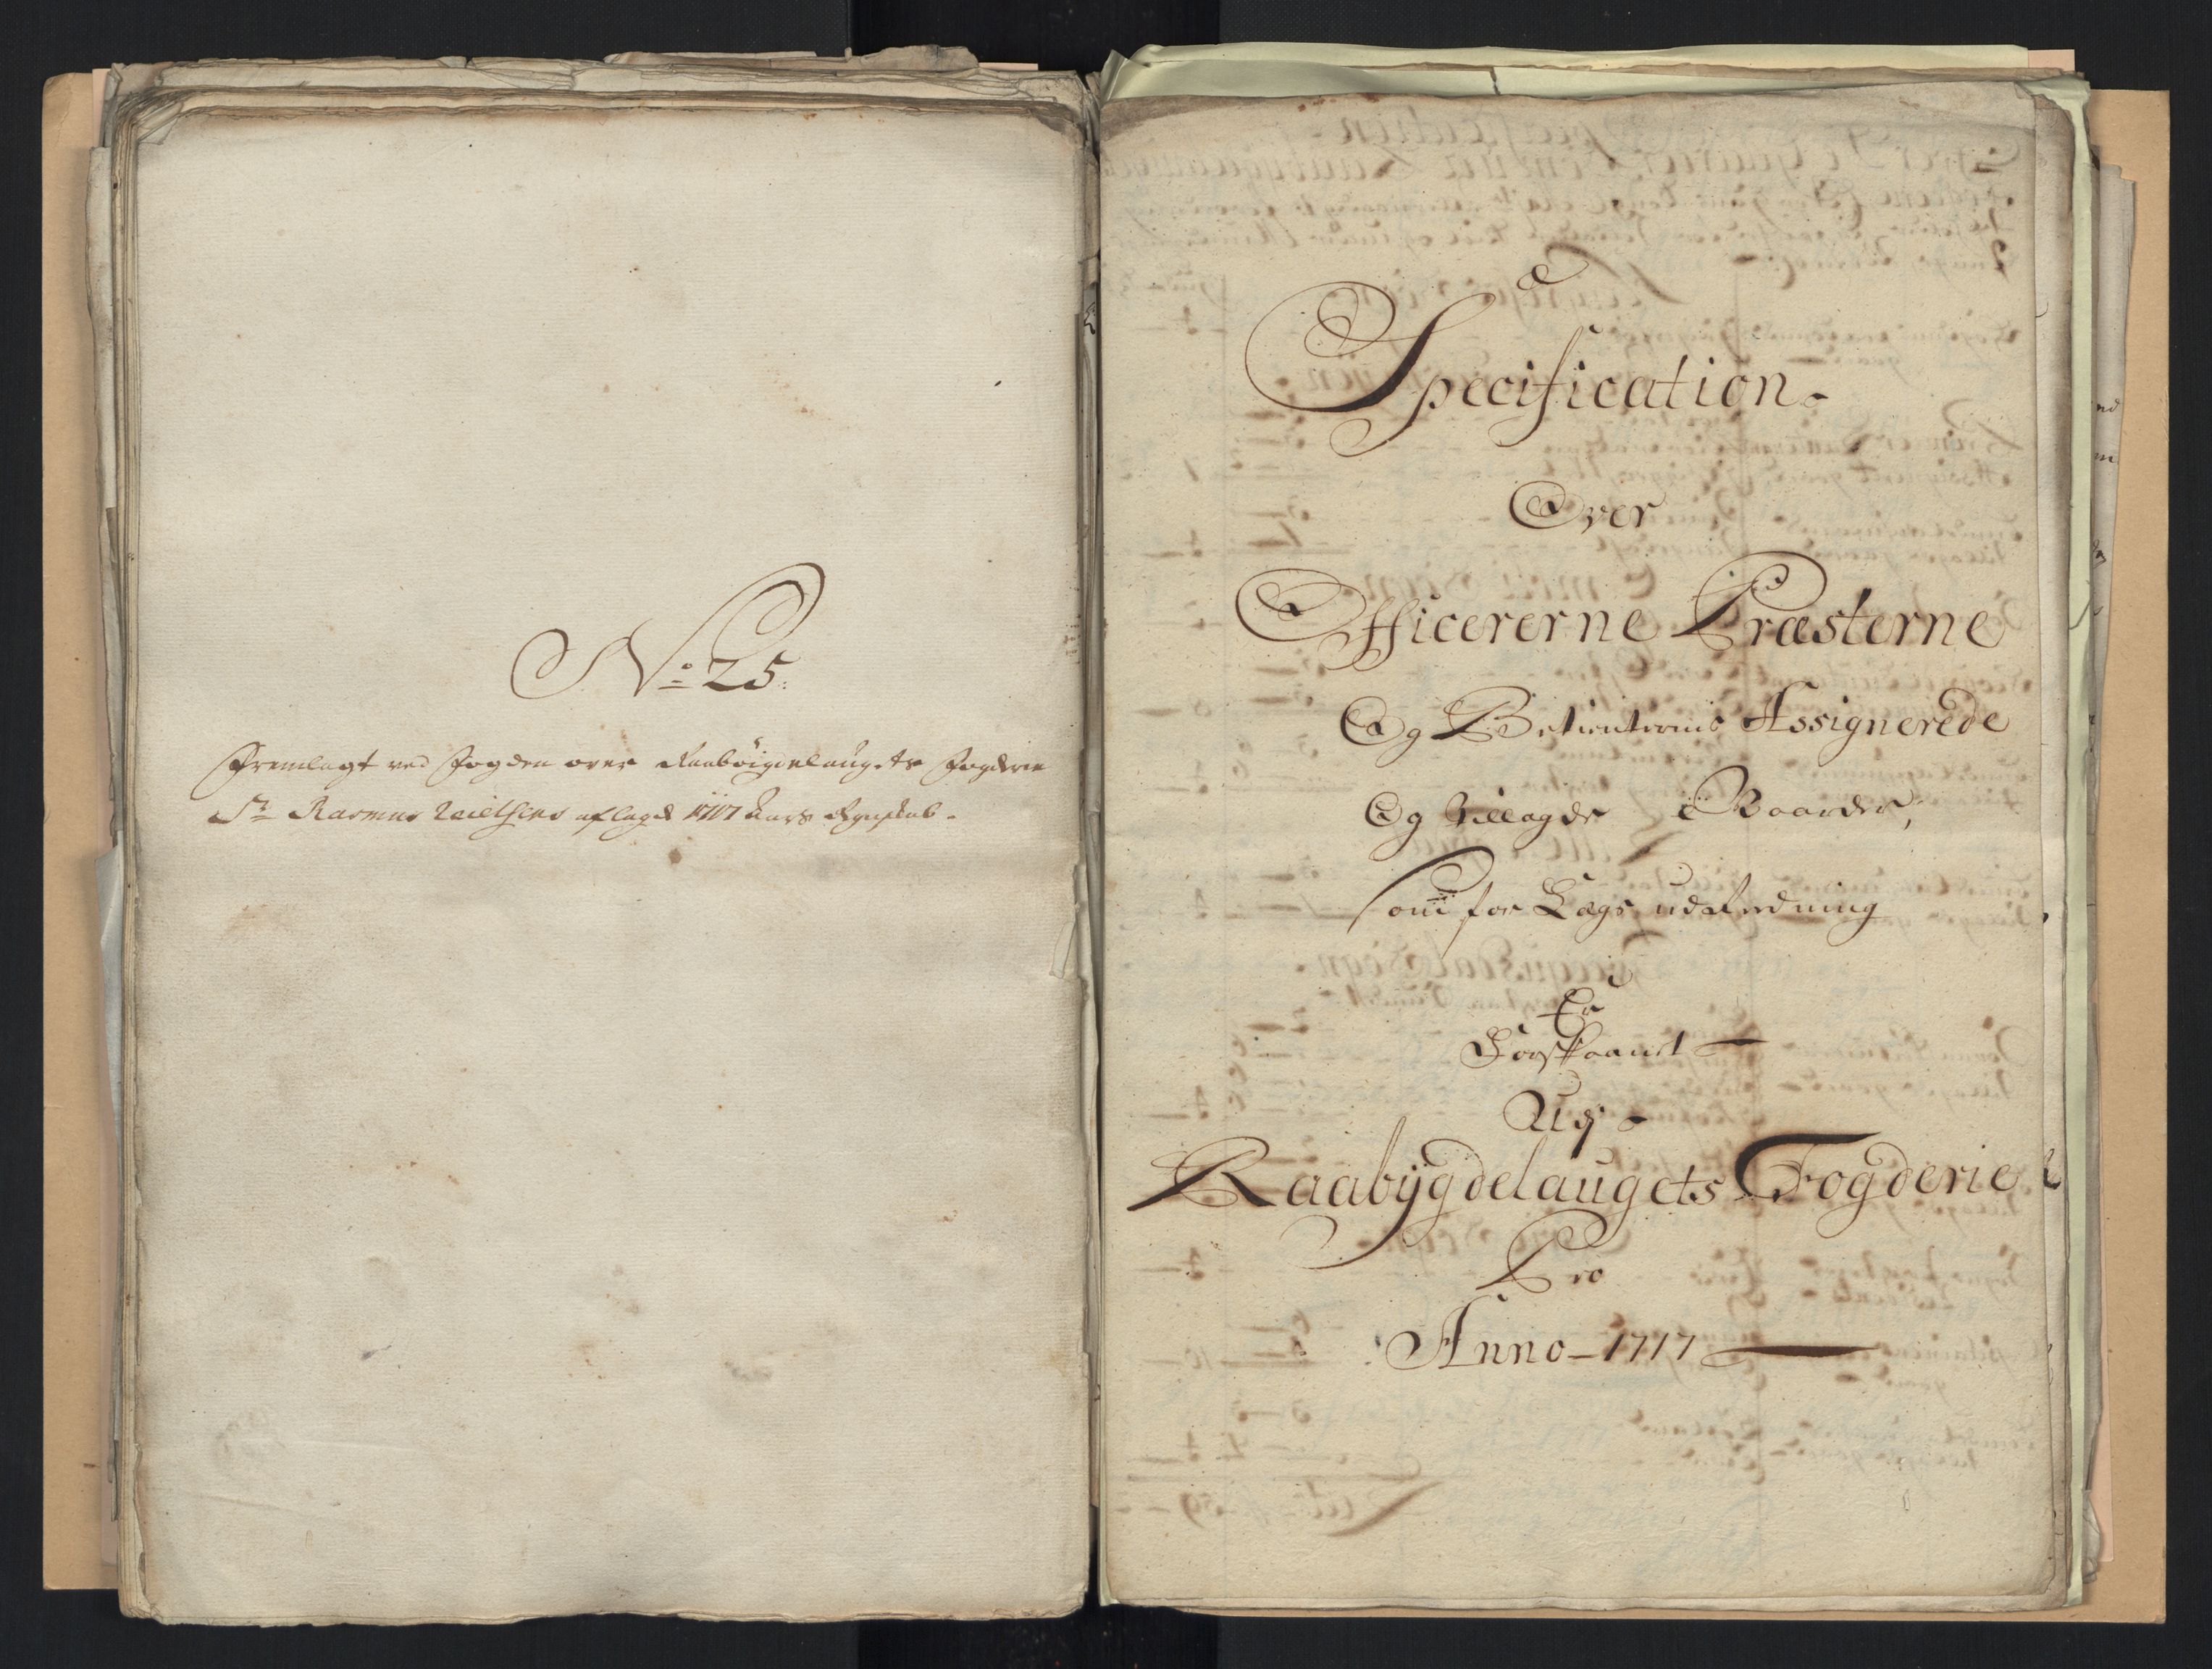 No: 25.
Fremlagt ved Fogden over Raabøigdelaugets Fogderie
Sr. Rasmus Nielsens aflagde 1717 Aars Regnskab.
Specification
Over
Officererne Præsterne
Og Betienternis Assignerede
Og tillagde Gaarder,
som for Lægs udreedning
Er
Forskaanet
Udj
Raabÿgdelaugets Fogderie
Pro
Anno 1717